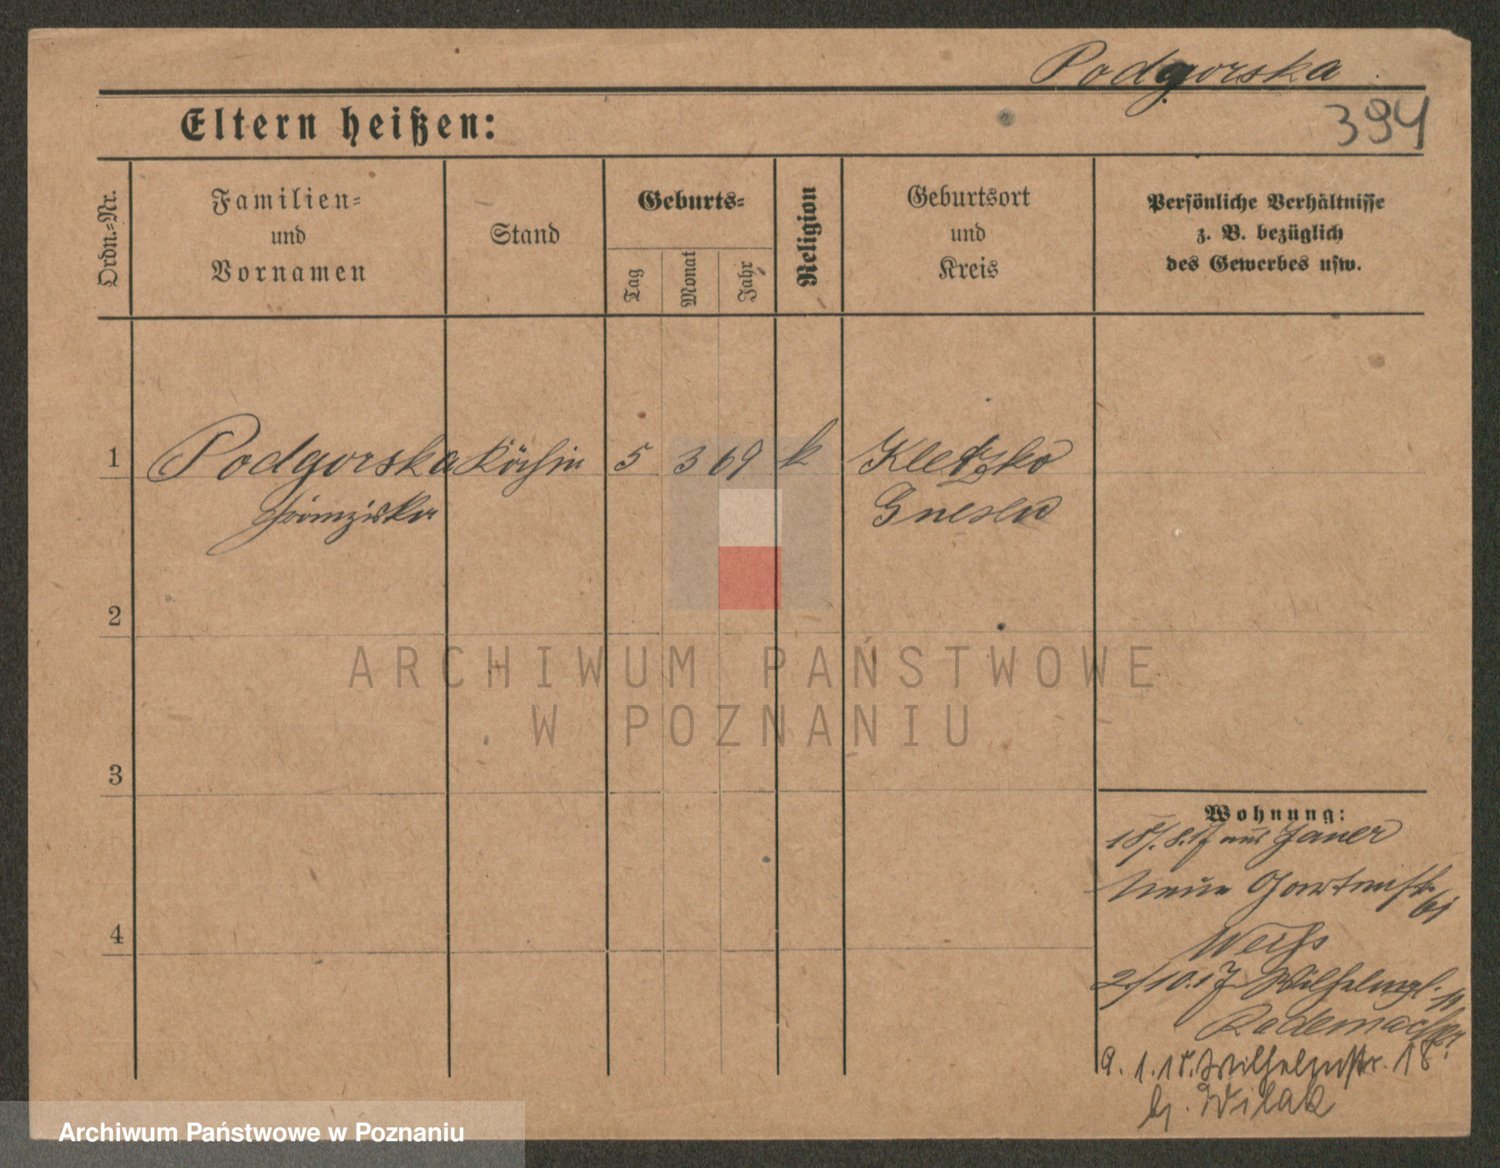 Podgorska
394
Eltern heißen:
Ordn.-Nr.
Familien-
und
Vornamen
Stand
Geburts-
Tag
Monat
Jahr
Religion
Geburtsort
und
Kreis
Persönliche Verhältnisse
z. B. bezüglich
des Gewerbes usw.
1 Podgorska Köchin 5 3 69 k Kletzko
Franziska Gnesen
2
3
4
Wohnung:
18/.8.17 aus Jauer
Neue Gartenstr.
61
Weiss
2/10.17 Wilhelmpl.
Rademacher
9. 1. 18. Wilhelmstr. 18.
b. Wilak
ARCHIWUM PAŃSTWOWE
W POZNANIU
Archiwum Państwowe w Poznaniu